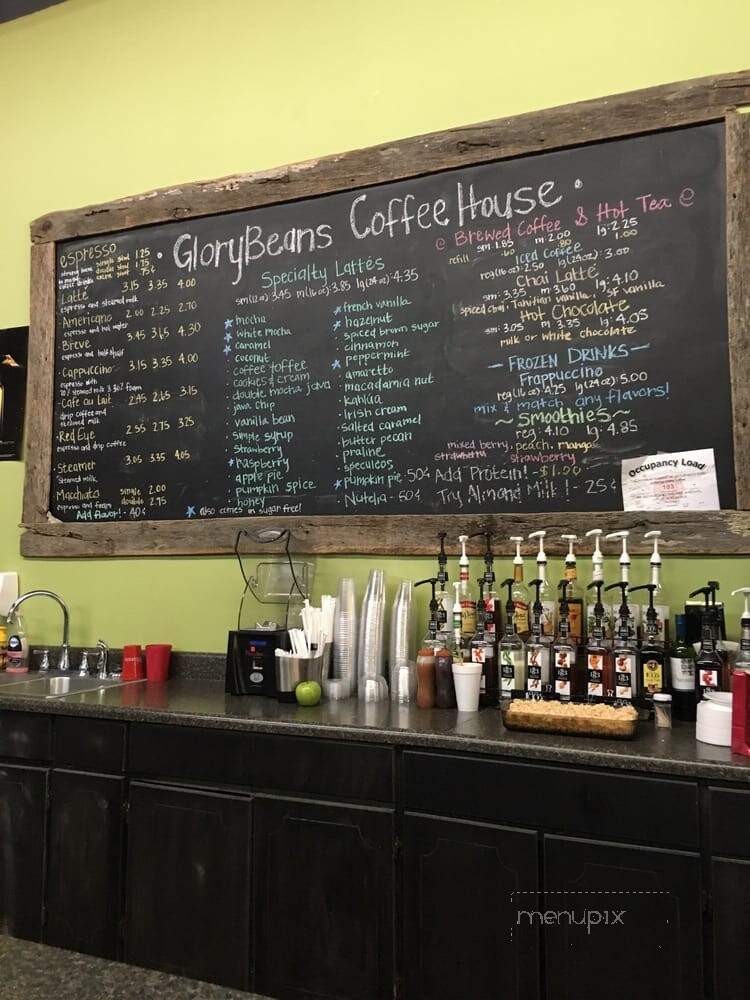 GloryBeans Coffee House
espresso
single shot 1.25
double shot 1.75
extra shot 75¢
Latte 3.15 3.35 4.00
espresso and steamed milk
Americano 2.00 2.25 2.70
espresso and hot water
Breve 3.45 3.65 4.30
espresso and half & half
Cappuccino 3.15 3.35 4.00
espresso with
Cafe au lait 2.45 2.65 3.15
drip coffee and
steamed milk
Red Eye 2.55 2.75 3.25
espresso and drip coffee
Steamer 3.05 3.35 4.05
steamed milk,
Macchiato single 2.00
espresso and foam double 2.75
Add flavor! - 40¢
Specialty Lattés
sm (12oz) 3.45 m (16oz) 3.85 lg (24oz) 4.35
mocha
white mocha
caramel
coconut
coffee toffee
cookies & cream
double mocha java
java chip
vanilla bean
simple syrup
strawberry
raspberry
apple pie
pumpkin spice
honey
also comes in sugar free!
french vanilla
hazelnut
spiced brown sugar
cinnamon
peppermint
amaretto
macadamia nut
kahlúa
Irish cream
salted caramel
butter pecan
praline
speculoos
pumpkin pie 50¢
Nutella - 60¢
Brewed Coffee & Hot Tea
sm 1.85 m 2.00 lg 2.25
refill .60 .80 1.00
Iced Coffee
reg (16oz) 2.50 lg (24oz) 3.00
Chai Latte
sm: 3.35 m 3.60 lg: 4.10
spiced chai, Tahitian vanilla, SF vanilla
Hot Chocolate
sm: 3.05 m: 3.35 lg: 4.05
milk or white chocolate
FROZEN DRINKS
Frappuccino
reg (16oz) 4.25 lg (24oz) 5.00
mix & match any flavors!
~Smoothies~
reg: 4.10 lg: 4.85
mixed berry, peach, mango
strawberry
Add Protein! - $1.00
Try Almond Milk! - 25¢
Occupancy Load
103
menupix